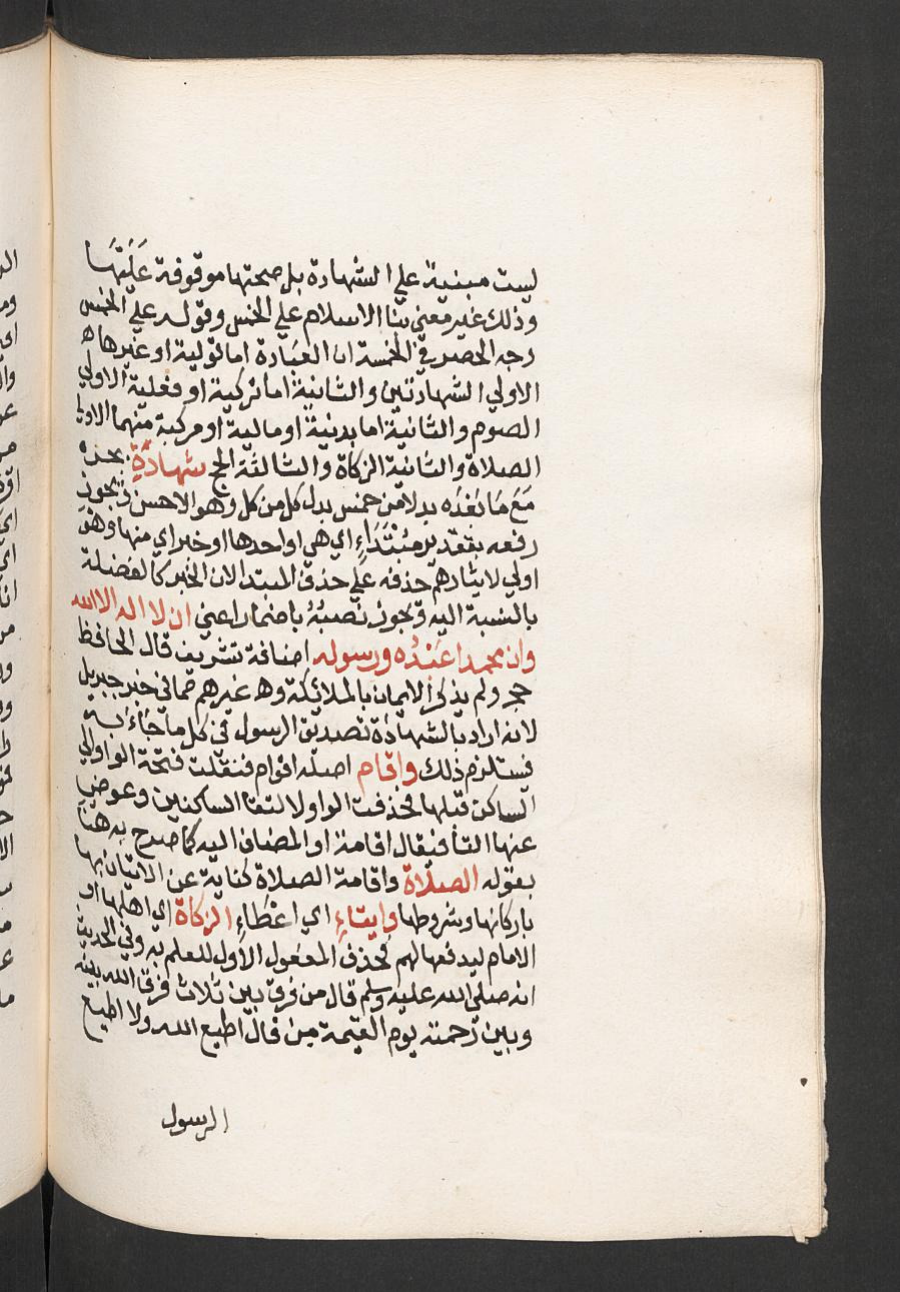 ليست مبنية علي الشهادة بل صحتها موقوفة عَلَيْهَا
وذلك غير معني بنا الاسلام علي الخمس وقوله علي الخمس
وجه الحصر في الخمسة ان العبادة اما قولية او غيرها
الاولي الشهادتين والثانية اما تركية او فعلية الاولي
الصوم والثانية اما بدنية او مالية او مركبة منهما الاولي
الصلاة والثانية الزكاة والثالثة الحج شهادَةِ بجره
مَعَ مَا بَعْدَه بدلا من خمس بدل كل من كل وهو الاحسن ويجوز
رفعه بتقدير مبْتَدَاءٍ اي هي او احدها او خبر اي منها وهو
اولي لايثارهم حذفه علي حذف المبتدا لان الخبر كالفضلة
بالنسبة اليه ويجوز نصبُهُ باضمار اعني ان لا اله الا الله
وان محمدا عَبْدُه ورسوله اضافة تشريف قال الحافظ
حجر ولم يذكر الايمان بالملائكة وغيرهم مما في خبر جبريل
لانه اراد بالشهادة تصديق الرسول في كل ما جَاءَ به
فيستلزم ذلك واقام اصله اقوام فنقلت فتحة الواو الي
الساكن قبلها فحذفت الواو لالتقا الساكنين وعوض
عنها التا فيقال اقامة او المضاف اليه كما صرح به هنا
بقوله الصلاة واقامة الصلاة كناية عن الاتيان بها
باركانها وشروطها وايتاءِ اي اعطاءِ الزكاة اي اهلها او
الامام ليدفعها لهم فحذف المفعول الاول للعلم به وفي الحديث
انه صلي الله عليه وسلم قال من فرق بين ثلاث فرق الله بينه
وبين رحمته يوم القيمة من قال اطيع الله ولا اطيع
الرسول